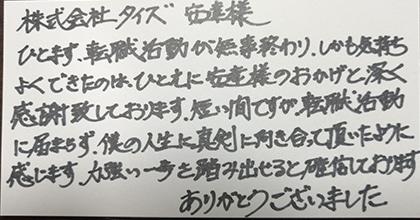 株式会社タイズ 安達様
ひとまず、転職活動が無事終わり、しかも気持ち
よくできたのは、ひとえに安達様のおかげと深く
感謝致しております。短い間ですが、転職活動
に留まらず、僕の人生に真剣に向き合って頂いたように
感じます。力強い一歩を踏み出せると確信しております
ありがとうございました